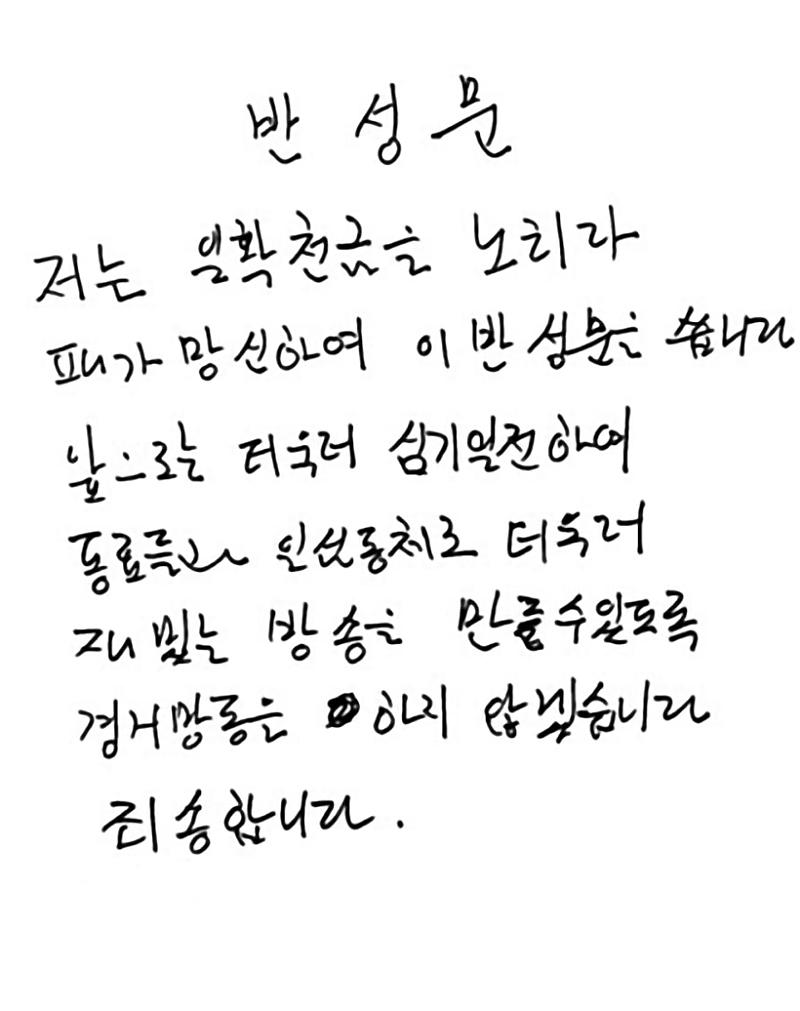 반성문
저는 일확천금을 노리다
패가망신하여 이 반성문을 씁니다
앞으로는 더욱더 심기일전하여
동료들과 일심동체로 더욱더
재밌는 방송을 만들수있도록
경거망동은 하지 않겠습니다
죄송합니다.